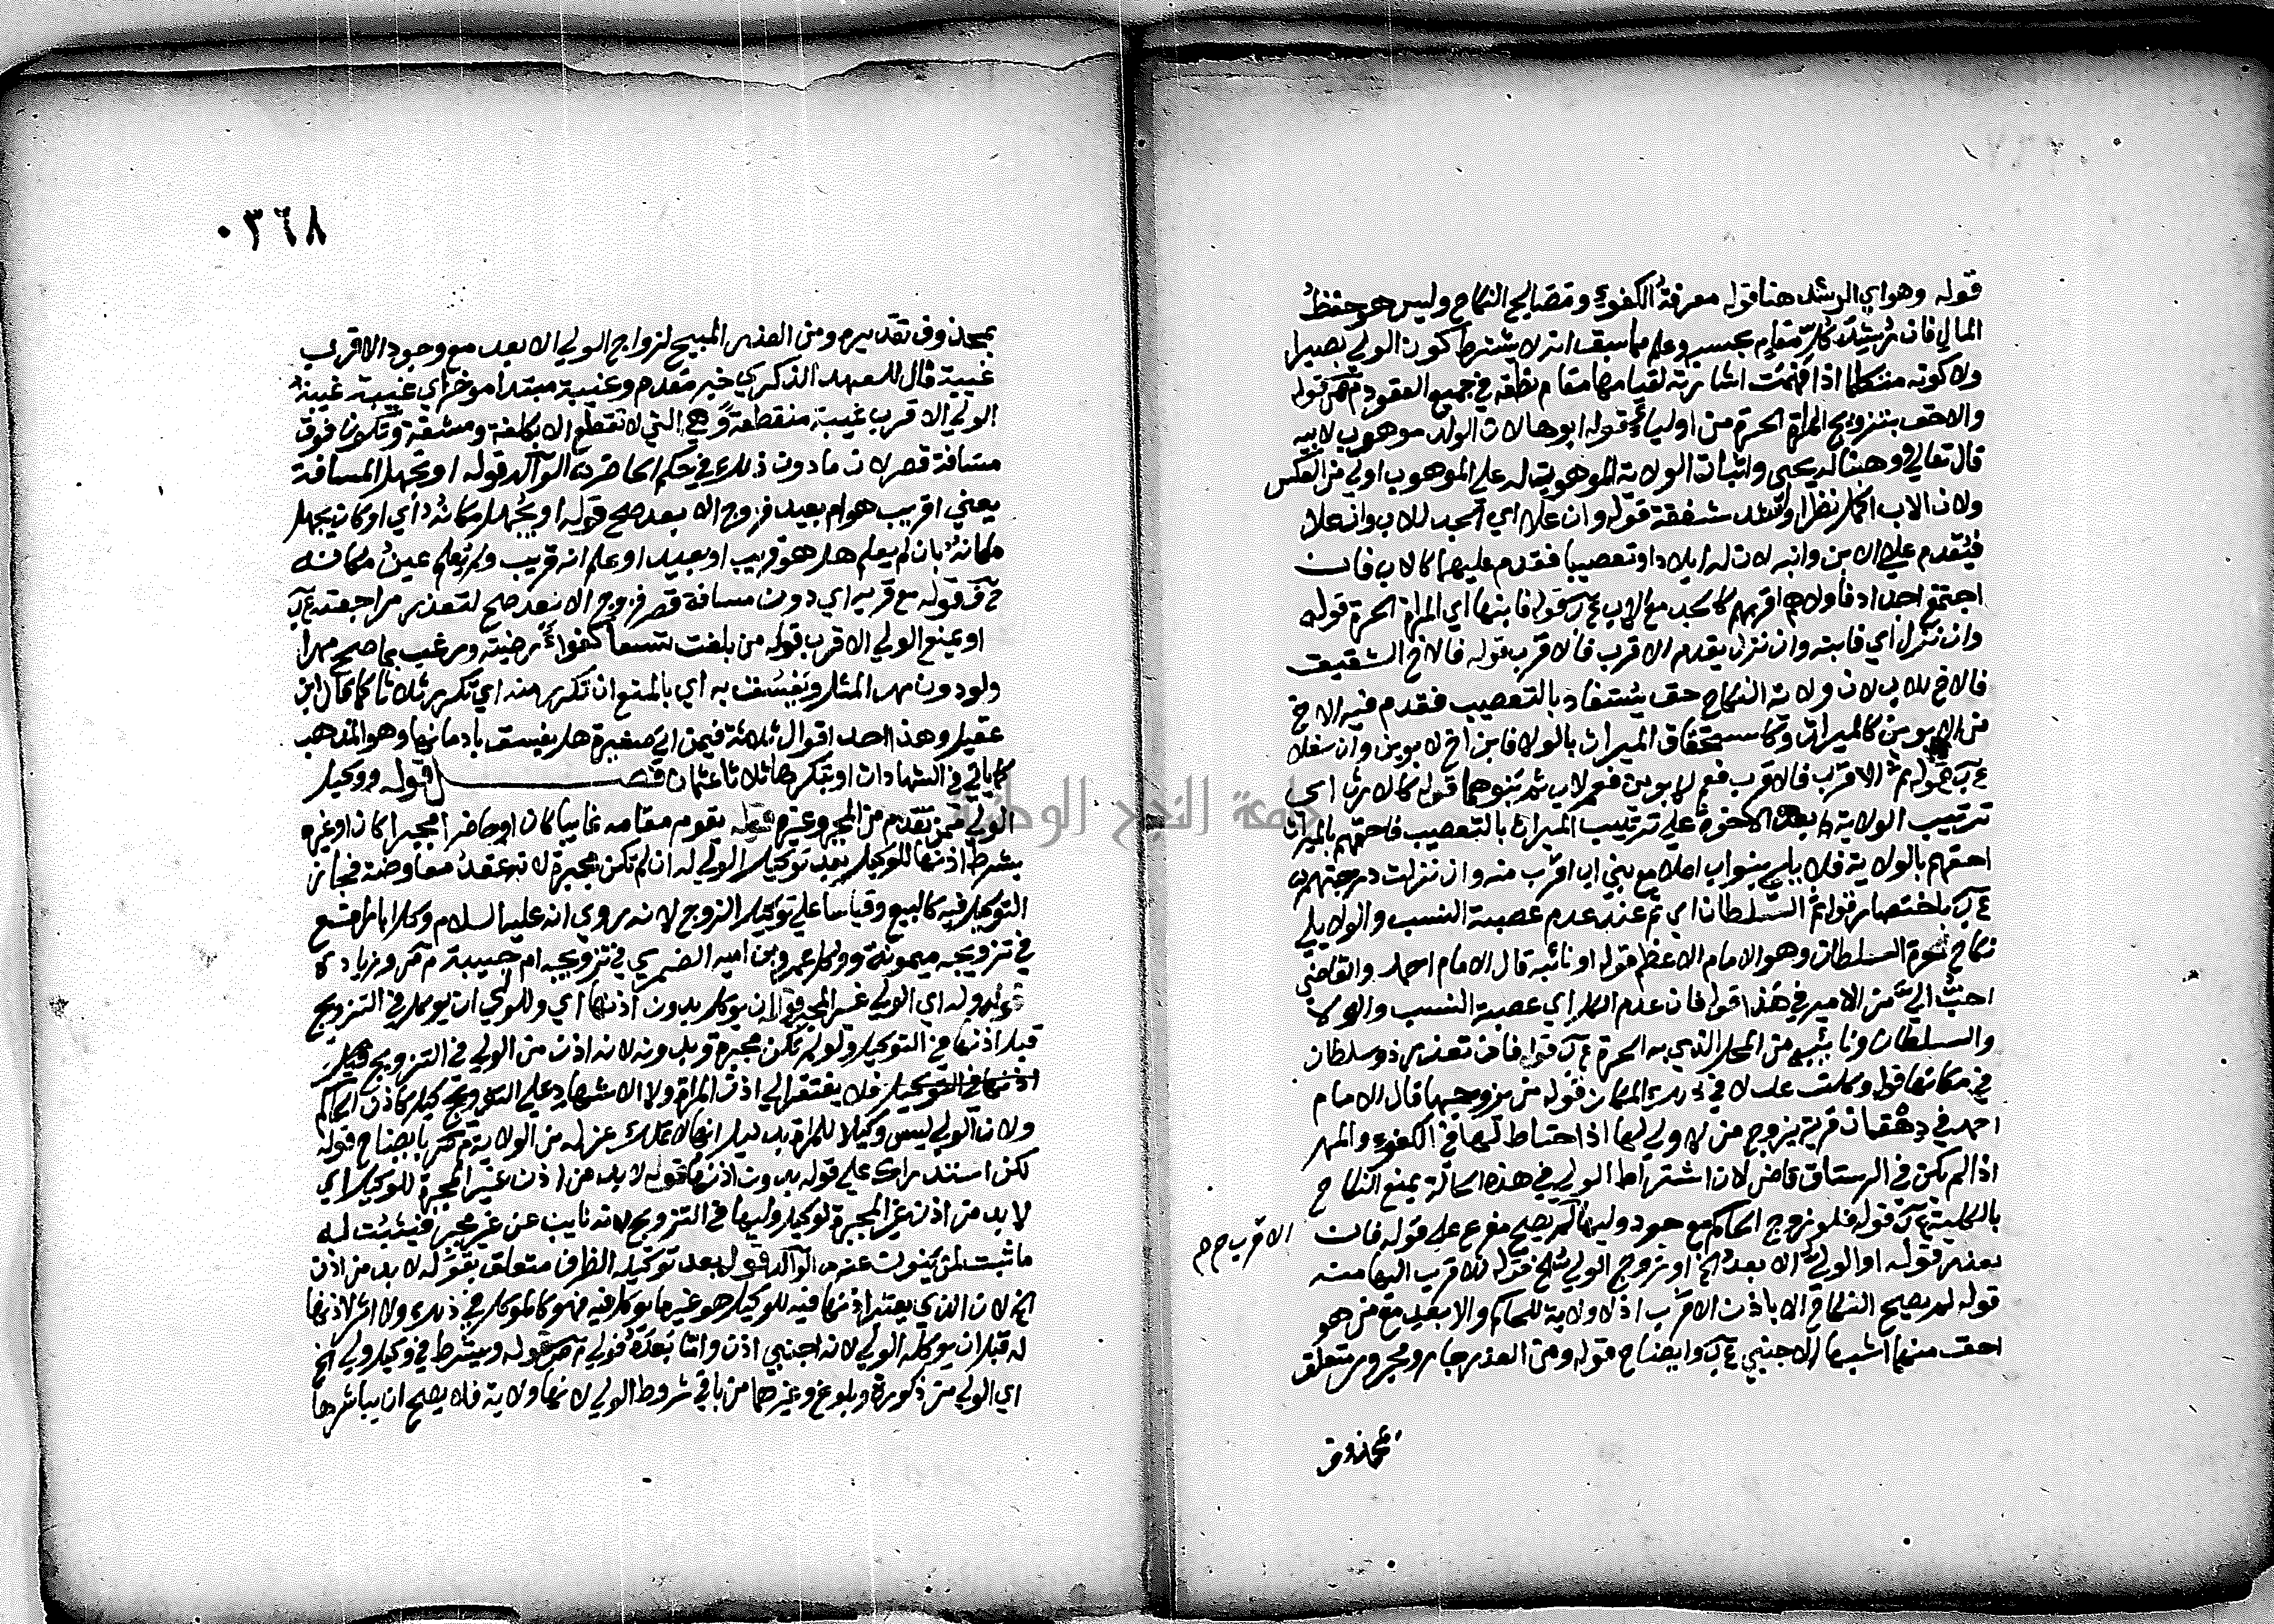 قوله وهو اي الرشد هنا قوله معرفة الكفوء ومصالح النكاح وليس هو حفظ
المال فان رشيد كل مقام بحسبه وعلم مما سبق انه لا يشترط كون الولي بصيرا
ولا كونه متكلما اذا فهمت اشارته لقيامها مقام نطقه في جميع العقود قوله
والاحق بتزويج المراة الحرة من اولياء قوله ابوها لان الولد موهوب لابيه
قال تعالى ووهبنا له يحيى واثبات الولاية للموهوب له على الموهوب اولى من العكس
ولان الاب اكمل نظرا واشد شفقة قوله وان علا اي الجد للاب وان علا
فيقدم على الابن وابنه لان له ايلادا وتعصيبا فقدم عليهما كالاب فان
اجتمع اجداد فاولاهم اقربهم كالجد مع الاب قوله فابنها اي المراة الحرة قوله
وان نزل اي فابنه وان نزل يقدم الاقرب فالاقرب قوله فالاخ الشقيق
فالاخ للاب لان ولاية النكاح حق يستفاد بالتعصيب فقدم فيه الاخ
من الابوين كالميراث وكاستحقاق الميراث بالولا فابن اخ لابوين وان سفلا
قوله ثم الاقرب فالاقرب فعم لابوين فعم لاب ثم بنوهما قوله كالارث اي
ترتيب الولاية بعد الاخوة على ترتيب الميراث بالتعصيب فاحقهم بالميراث
احقهم بالولاية فلا يلي بنو اب اعلا مع بني اب اقرب منه وان نزلت درجتهم
باختصار قوله ثم السلطان اي ثم عند عدم عصبة النسب والولا يلي
نكاح الحرة السلطان وهو الامام الاعظم قوله او نائبه قال الامام احمد والقاضي
احب الي من الامير في هذا قوله فان عدم الكل اي عصبة النسب والولا
والسلطان ونائبه من المحل الذي به الحرة قوله فان تعذر ذو سلطان
في مكانها قوله وكلت عدلا في ذلك المكان قوله من يزوجها قال الامام
احمد في دهقان قرية يزوج من لا ولي لها اذا احتاط لها في الكفوء والمهر
اذا لم يكن في الرستاق قاض لان اشتراط الولي في هذه الحالة يمنع النكاح
بالكلية قوله فلو زوج الحاكم مع وجود وليها لم يصح مفرع على قوله فان
الاقرب
بعذر قوله او الولي الابعد الخ او زوج الولي الخ قوله للاقرب اليها منه
قوله لم يصح النكاح الا باذن الاقرب اذ لا ولاية للحاكم والابعد مع من هو
احق منهما اشبها الاجنبي وايضاح قوله ومن العذر جار ومجرور متعلق
بمحذوف
٠٣٦٨
بمحذوف تقديره ومن العذر المبيح لزواج الولي الابعد مع وجود الاقرب
غيبة قال للعهد الذكري خبر مقدم وغيبة مبتدا موخر اي غيبة غيبة
الولي الاقرب غيبة منقطعة وهي التي لا تقطع الا بكلفة ومشقة وتكون فوق
مسافة قصر لان ما دون ذلك في حكم الحاضر قوله او تجهل المسافة
يعني اقريب هو ام بعيد فزوج الابعد صح قوله او يجهل مكانه اي او كان يجهل
مكانه بان لم يعلم هل هو قريب او بعيد او علم انه قريب ولم يعلم عين مكانه
قوله مع قربه اي دون مسافة قصر فزوج الابعد صح لتعذر مراجعته
او يمنع الولي الاقرب قوله من بلغت تسعا كفوا رضيته ورغب بما صح مهرا
ولو دون مهر المثل ويفسق به اي بالمنع ان تكرر منه اي تكرر ثلاثا كما قال ابن
عقيل وهذا احد اقوال ثلاثة فيمن اتى صغيرة هل يفسق بادمانها وهو المذهب
كما ياتي في الشهادات او بتكرها ثلاثا عثمان فصل قوله ووكيل
الولي ممن تقدم من المجبر وغيره قوله يقوم مقامه غايبا كان او حاضرا مجبرا كان او غيره
بشرط اذنها للوكيل بعد توكيل الولي له ان لم تكن مجبرة لانه عقد معاوضة فجاز
التوكيل فيه كالبيع وقياسا على توكيل الزوج لانه روي انه عليه السلام وكل ابا رافع
في تزويجه ميمونة ووكل عمرو بن امية الضمري في تزويجه ام حبيبة وزيادة
وله اي الولي غير المجبر قوله ان يوكل بدون اذنها اي وللولي ان يوكل في التزويج
قبل اذنها في التوكيل ولو لم تكن مجبرة وبدونه لانه اذن من الولي في التزويج
فلا يفتقر الى اذن المراة ولا الاشهاد على التزويج كاذن الحاكم
ولان الولي ليس وكيلا للمراة بدليل انها لا تملك عزله من الولاية بايضاح قوله
لكن استدراك على قوله بدون اذنها قوله لا بد من اذن غير المجبرة للوكيل اي
لا بد من اذن غير المجبرة لوكيل وليها في التزويج لانه نايب عن غير مجبر فيثبت له
ما ثبت لمن ينوب عنه قوله بعد توكيله الظرف متعلق بقوله لا بد من اذن
الخ لان الذي يعتبر اذنها فيه للوكيل هو غير ما يوكل فيه فهو كالموكل في ذلك ولا اثر لاذنها
له قبل ان يوكله الولي لانه اجنبي اذن واما بعده فولي قوله ويشترط في وكيل ولي الخ
اي الولي من ذكورة وبلوغ وغيرهما من باقي شروط الولي لانها ولاية فلا يصح ان يباشرها